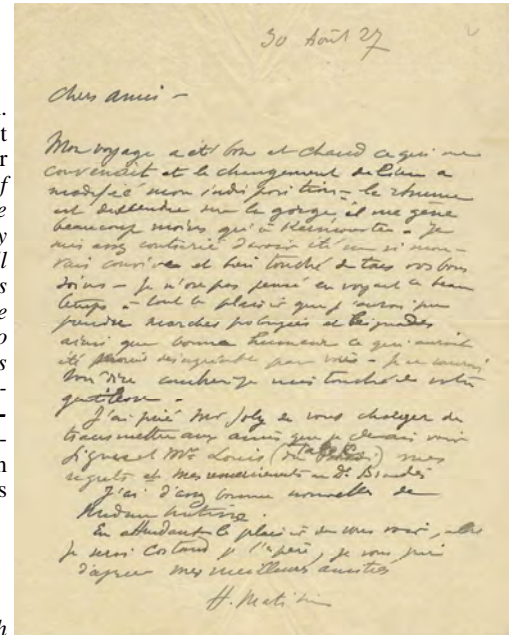 30 Août 27
Chers amis –
Mon voyage a été bon et chaud ce qui me
convenait et le changement de lieu a
modifié mon indisposition – le rhume
est descendu sur la gorge, il me gêne
beaucoup moins qu'à – Je
suis assez contrarié d'avoir été un si mau-
vais convive et bien touché de tous vos bons
soins – je n'ose pas penser en voyant ce beau
temps – tout le plaisir que j'aurais pu
prendre marches prolongées et baignades
ainsi que bonne humeur ce qui aurait
été moins désagréable pour vous – je ne saurais
vous dire combien je suis touché de votre
gentillesse –
J'ai prié Mr Joly de vous charger de
transmettre aux amis que je devais voir
Signac et Mr Louis mes
regrets et mes remerciements au Dr
J'ai d'assez bonnes nouvelles de
Madame Matisse.
En attendant le plaisir de vous voir,
je vous prie
d'agréer mes meilleures amitiés
H. Matisse
t
r
f
e
y
l
s
e
o
s
-
-
-
n
s
h